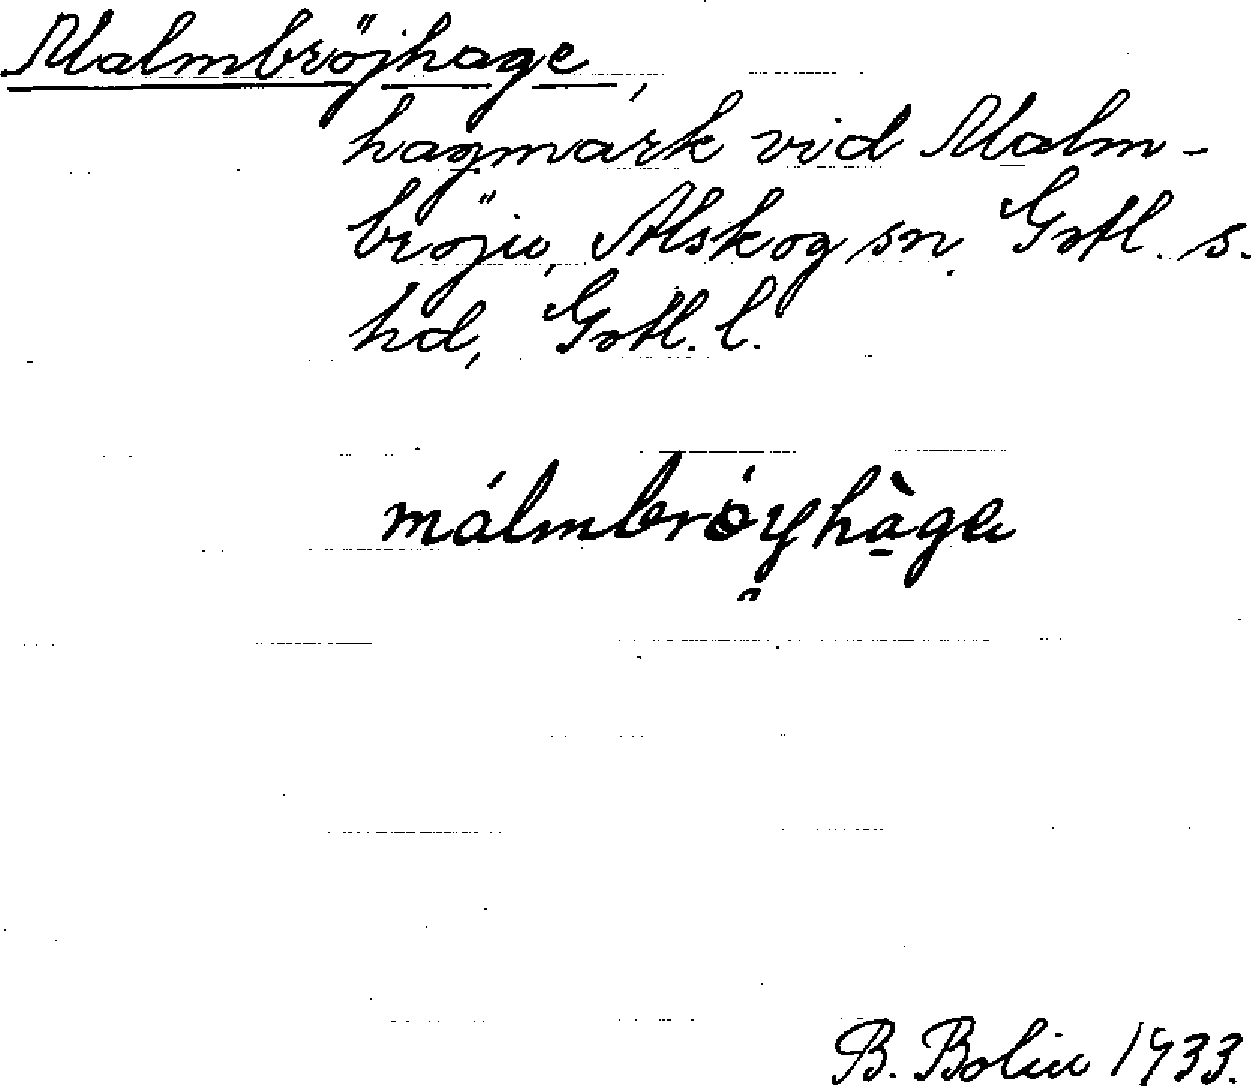 Malmbröjhage,
hagmark vid Malm-
bröju, Alskog sn. Gotl. s.
hd, Gotl. l.
málmbrȯyhàga
B. Bolin 1933.